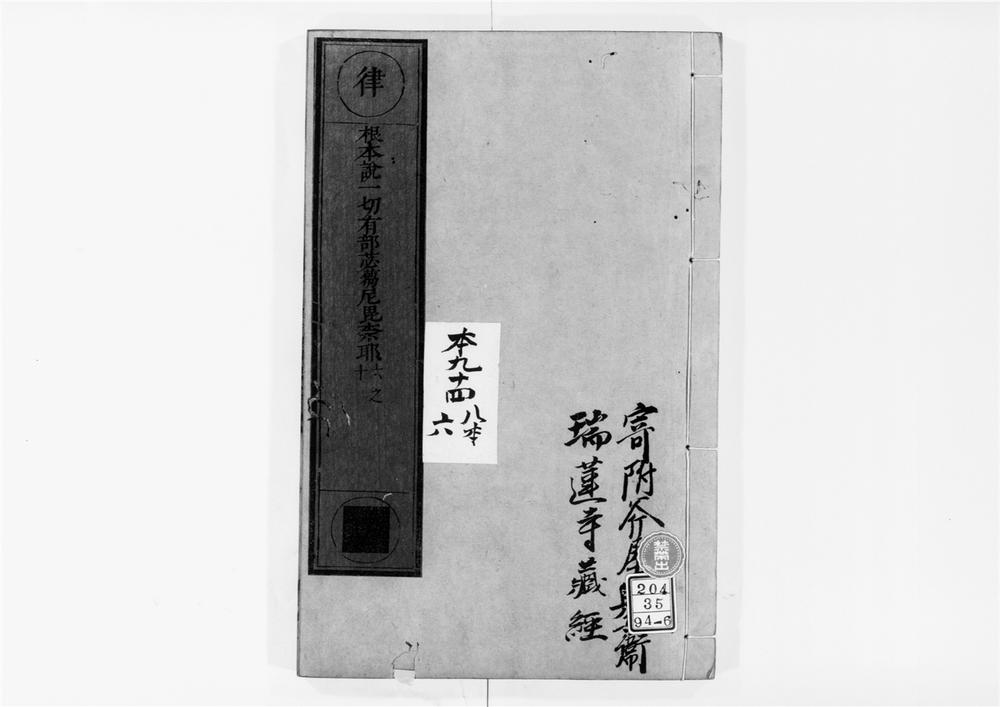 寄附斧屋衛
瑞蓮寺藏經
禁帶出
204
35
94-6
本九十四
八本
六
律
根本說一切有部苾蒭尼毘奈耶